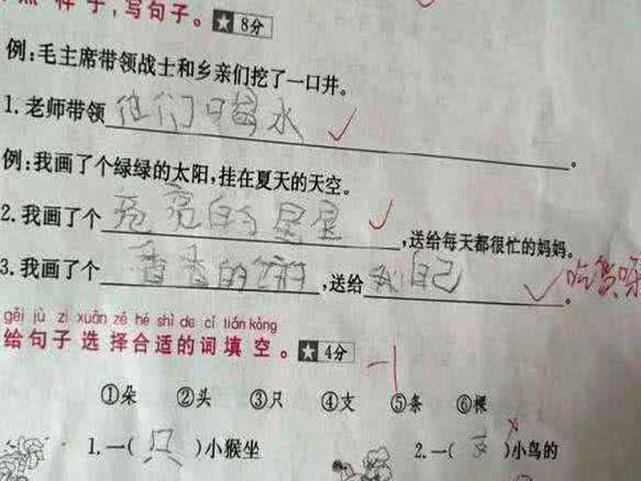 照样子,写句子。★8分
例:毛主席带领战士和乡亲们挖了一口井。
1.老师带领他们喝水。
例:我画了个绿绿的太阳,挂在夏天的天空。
2.我画了个亮亮的星星,送给每天都很忙的妈妈。
3.我画了个香香的饼,送给我自己。吃货呀
gěi jù zi xuǎn zé hé shì de cí tián kòng
给句子选择合适的词填空。★4分 -1
①朵 ②头 ③只 ④支 ⑤条 ⑥棵
1.一(只)小猴坐
2.一( )小鸟的